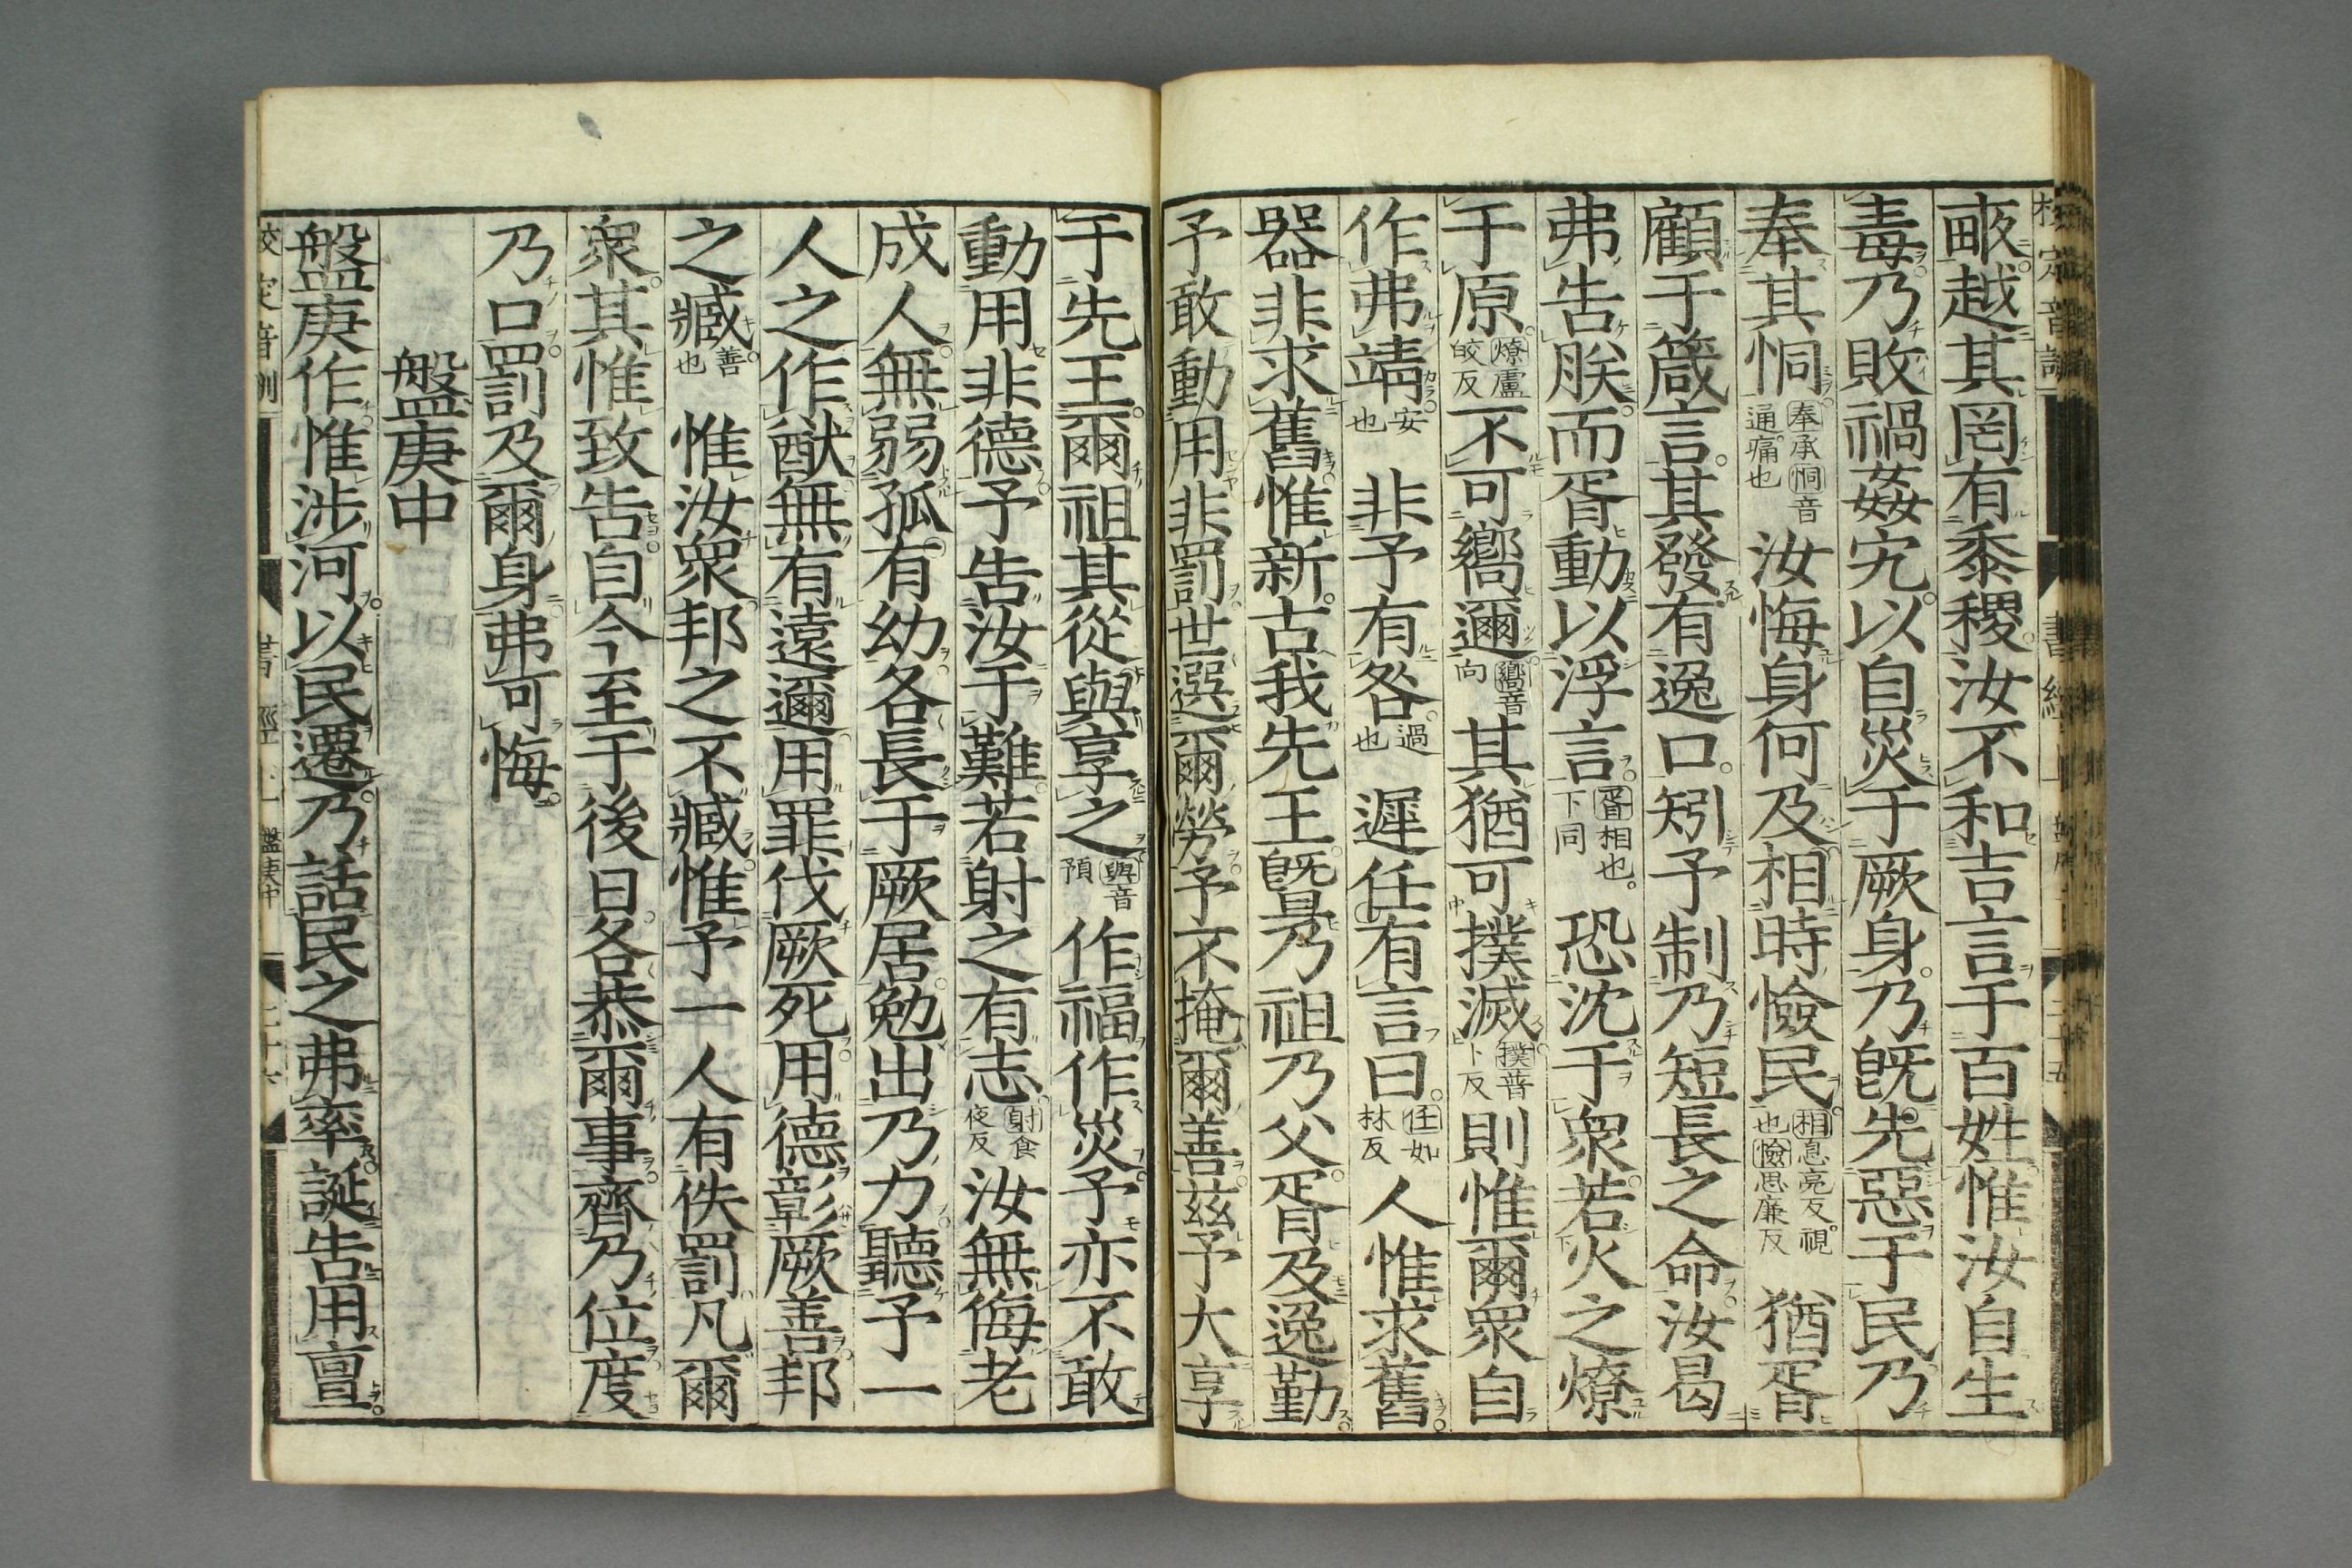 畞越其罔有黍稷汝不和吉言于百姓惟汝自生
毒乃敗禍姦宄以自災于厥身乃旣先惡于民乃
奉其恫奉承恫音通痛也汝悔身何及相時憸民相息亮反視也憸思廉反猶胥
顧于箴言其發有逸口矧予制乃短長之命汝曷
弗告朕而胥動以浮言胥相也下同恐沈于衆若火之燎
于原燎盧皎反不可嚮邇嚮音向其猶可撲滅撲普卜反則惟爾衆自
作弗靖安也非予有咎過也遲任有言曰任如林反人惟求舊
器非求舊惟新古我先王曁乃祖乃父胥及逸勤
予敢動用非罰世選爾勞予不掩爾善茲予大享
于先王爾祖其從與享之與音預作福作災予亦不敢
動用非德予告汝于難若射之有志射食夜反汝無侮老
成人無弱孤有幼各長于厥居勉出乃力聽予一
人之作猷無有遠邇用罪伐厥死用德彰厥善邦
之臧善也惟汝衆邦之不臧惟予一人有佚罰凡爾
衆其惟致告自今至于後日各恭爾事齊乃位度
乃口罰及爾身弗可悔
盤庚中
盤庚作惟涉河以民遷乃話民之弗率誕告用亶
校定音訓 書經上 盤庚中 二十六